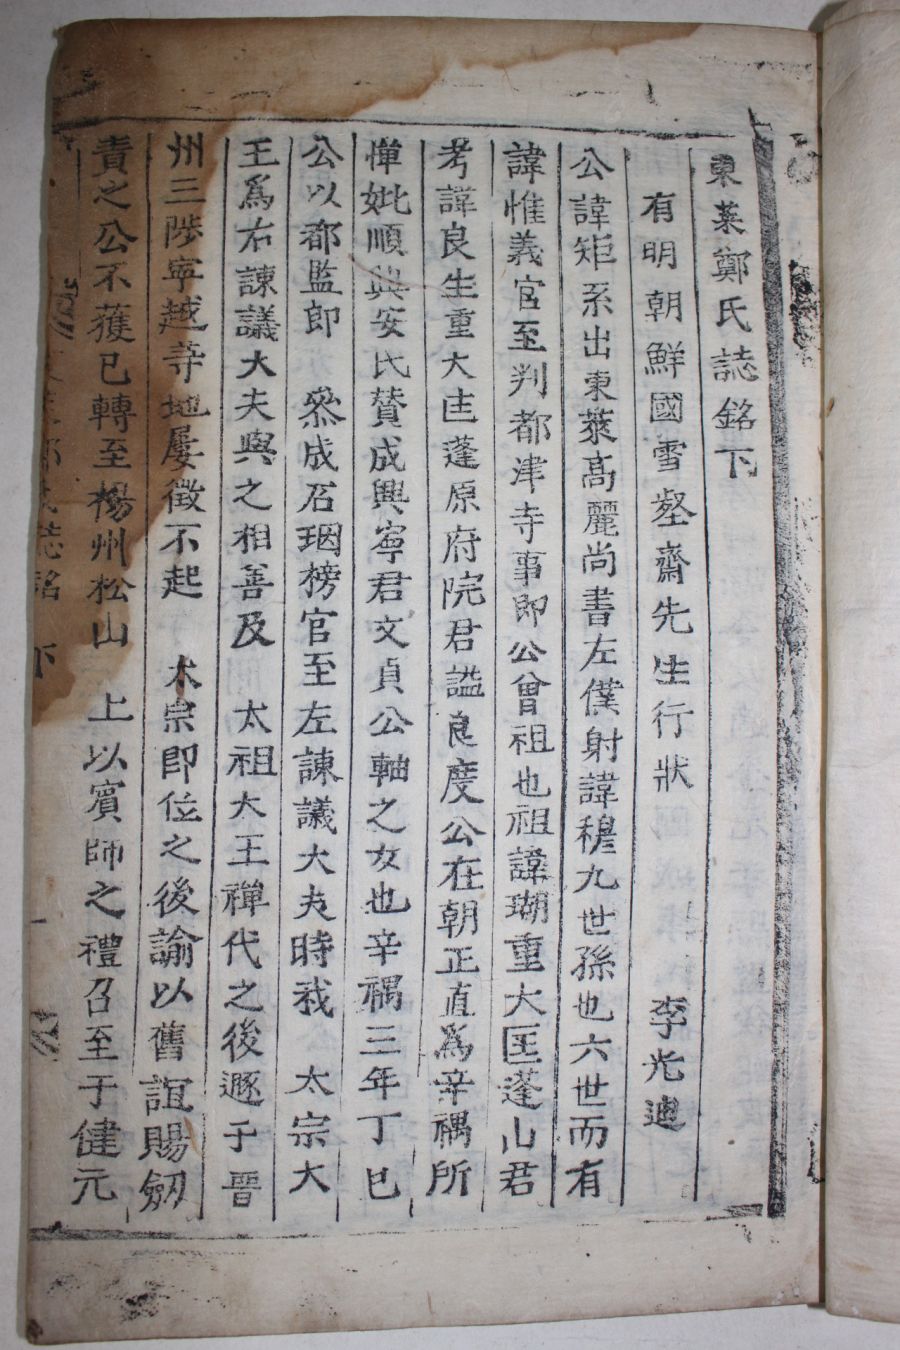 東萊鄭氏誌銘下
有明朝鮮國雪壑齋先生行狀 李光迪
公諱矩系出東萊高麗尚書左僕射諱穆九世孫也六世而有
諱惟義官至判都津寺事即公曾祖也祖諱瑚重大匡蓬山君
考諱良生重大匡蓬原府院君謚良度公在朝正直爲辛禑所
憚妣順興安氏賛成興寧君文貞公軸之女也辛禑三年丁巳
公以都監郎 叅成石璘榜官至左諫議大夫時我 太宗大
王爲右諫議大夫與之相善及 太祖大王禅代之後遯于晉
州三陟寧越等地屡徵不起 太宗即位之後諭以舊誼賜劒
責之公不獲已轉至楊州松山 上以賓師之禮召至于健元
誌銘 下